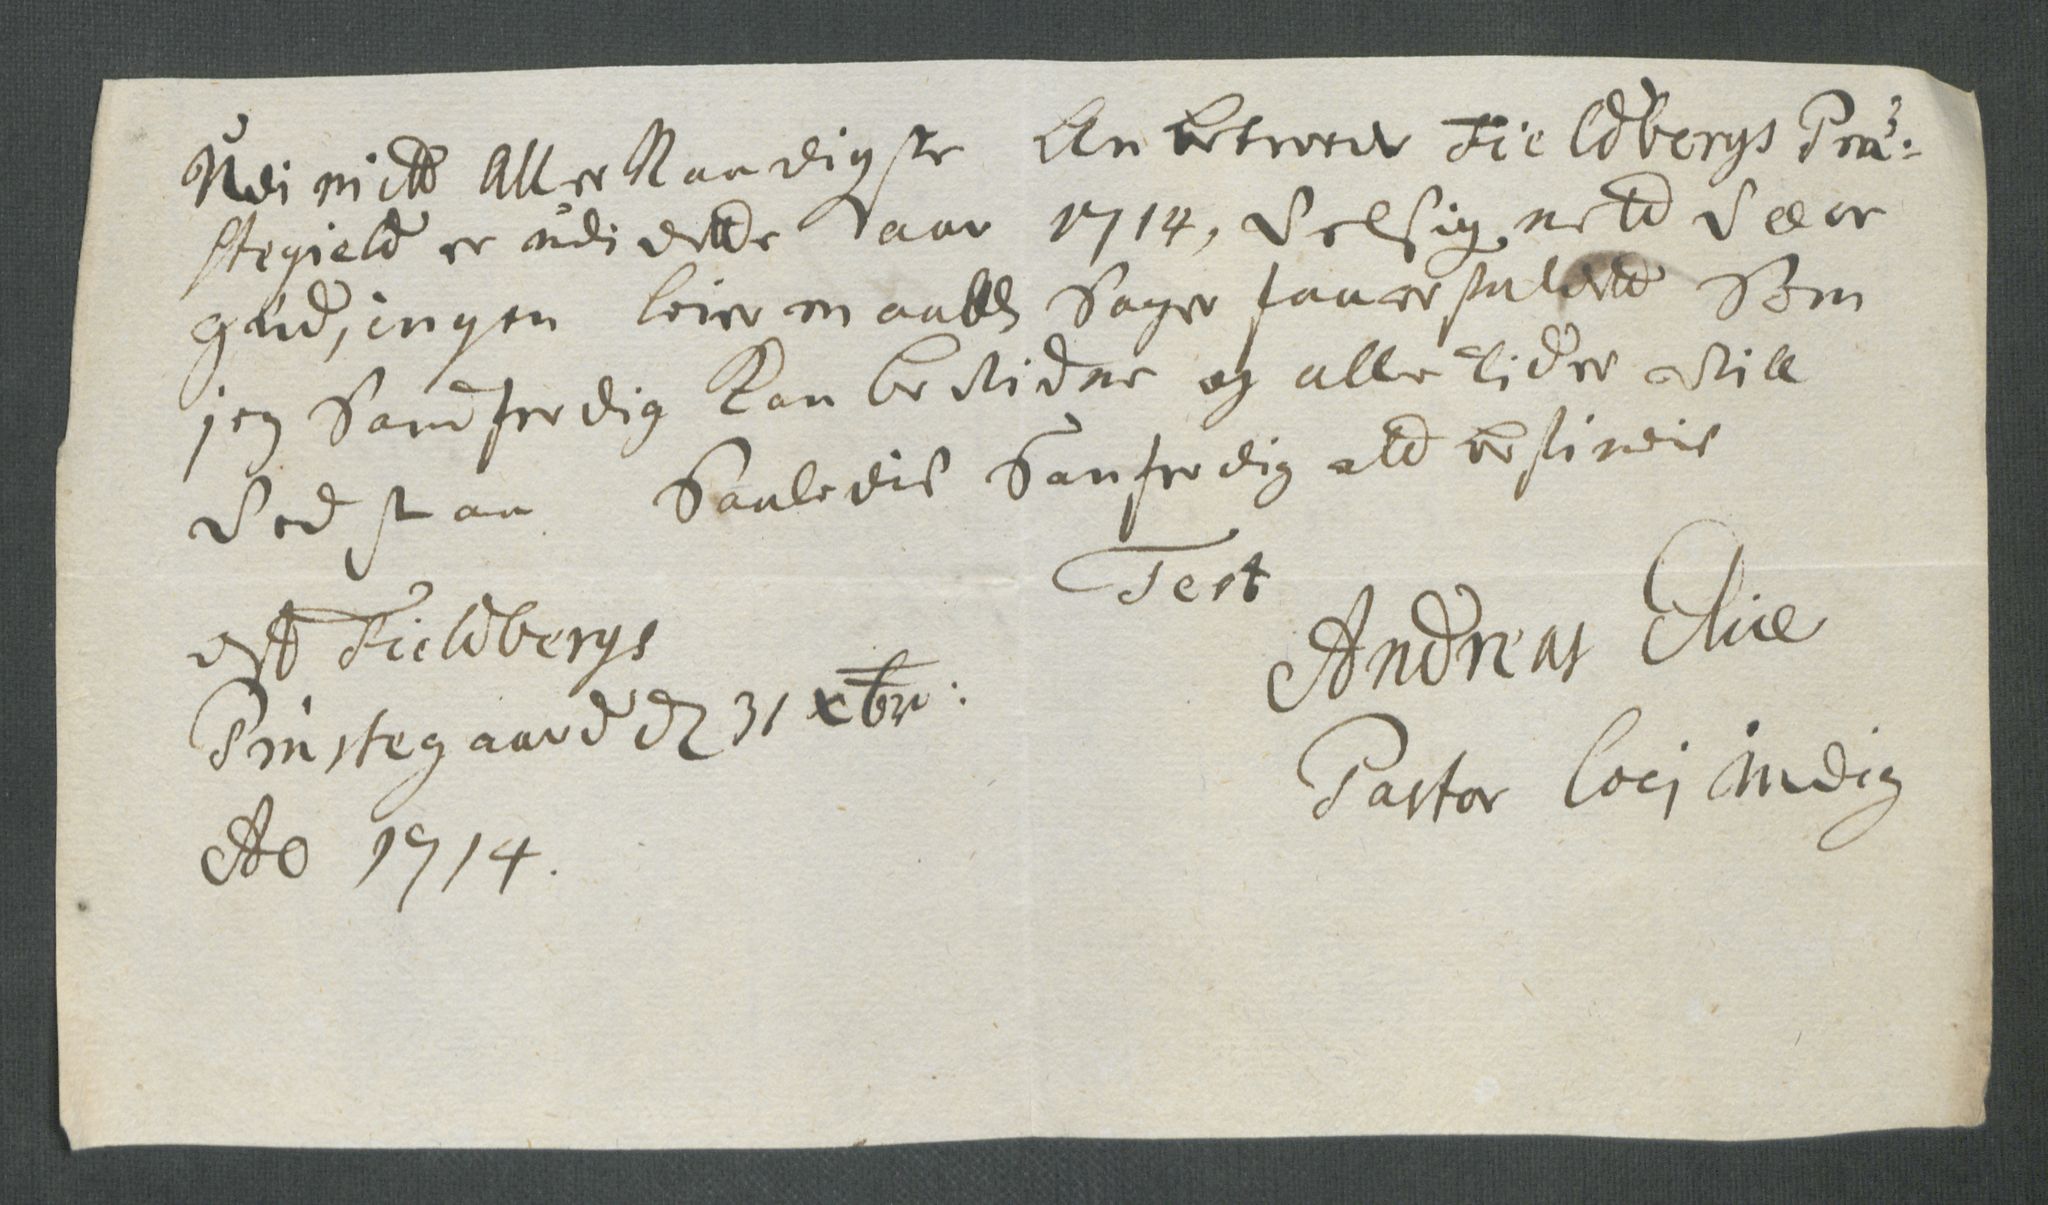 Udi mitt Aller Naadigste An betroede Fieldbergs Præ-
stegield er udi dette aar 1714, Velsignett Være
gud, ingen leiermaalls Sager faaerfaldett Som
jeg Sandferdig Kan bevidne og alle tider Vill
Vedstaa Saaledis Sanferdig att befindis
Test
Andreas Elice
Pastor Locj indig
Fieldbergs
Præstegaard dz 31 xbr:
Ao 1714.